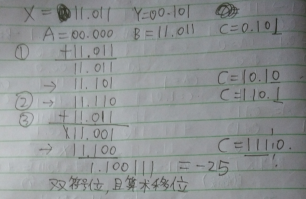 X = 11.011 Y=00.101
A = 00.000 B = 11.011 C=0.101
① +11.011
11.011
→ 11.101 C=10.10
② → 11.110 C=110.1
③ +11.011
11.001
→ 11.100 C=1110.
1.100111 =-25
双符号位,且算术移位